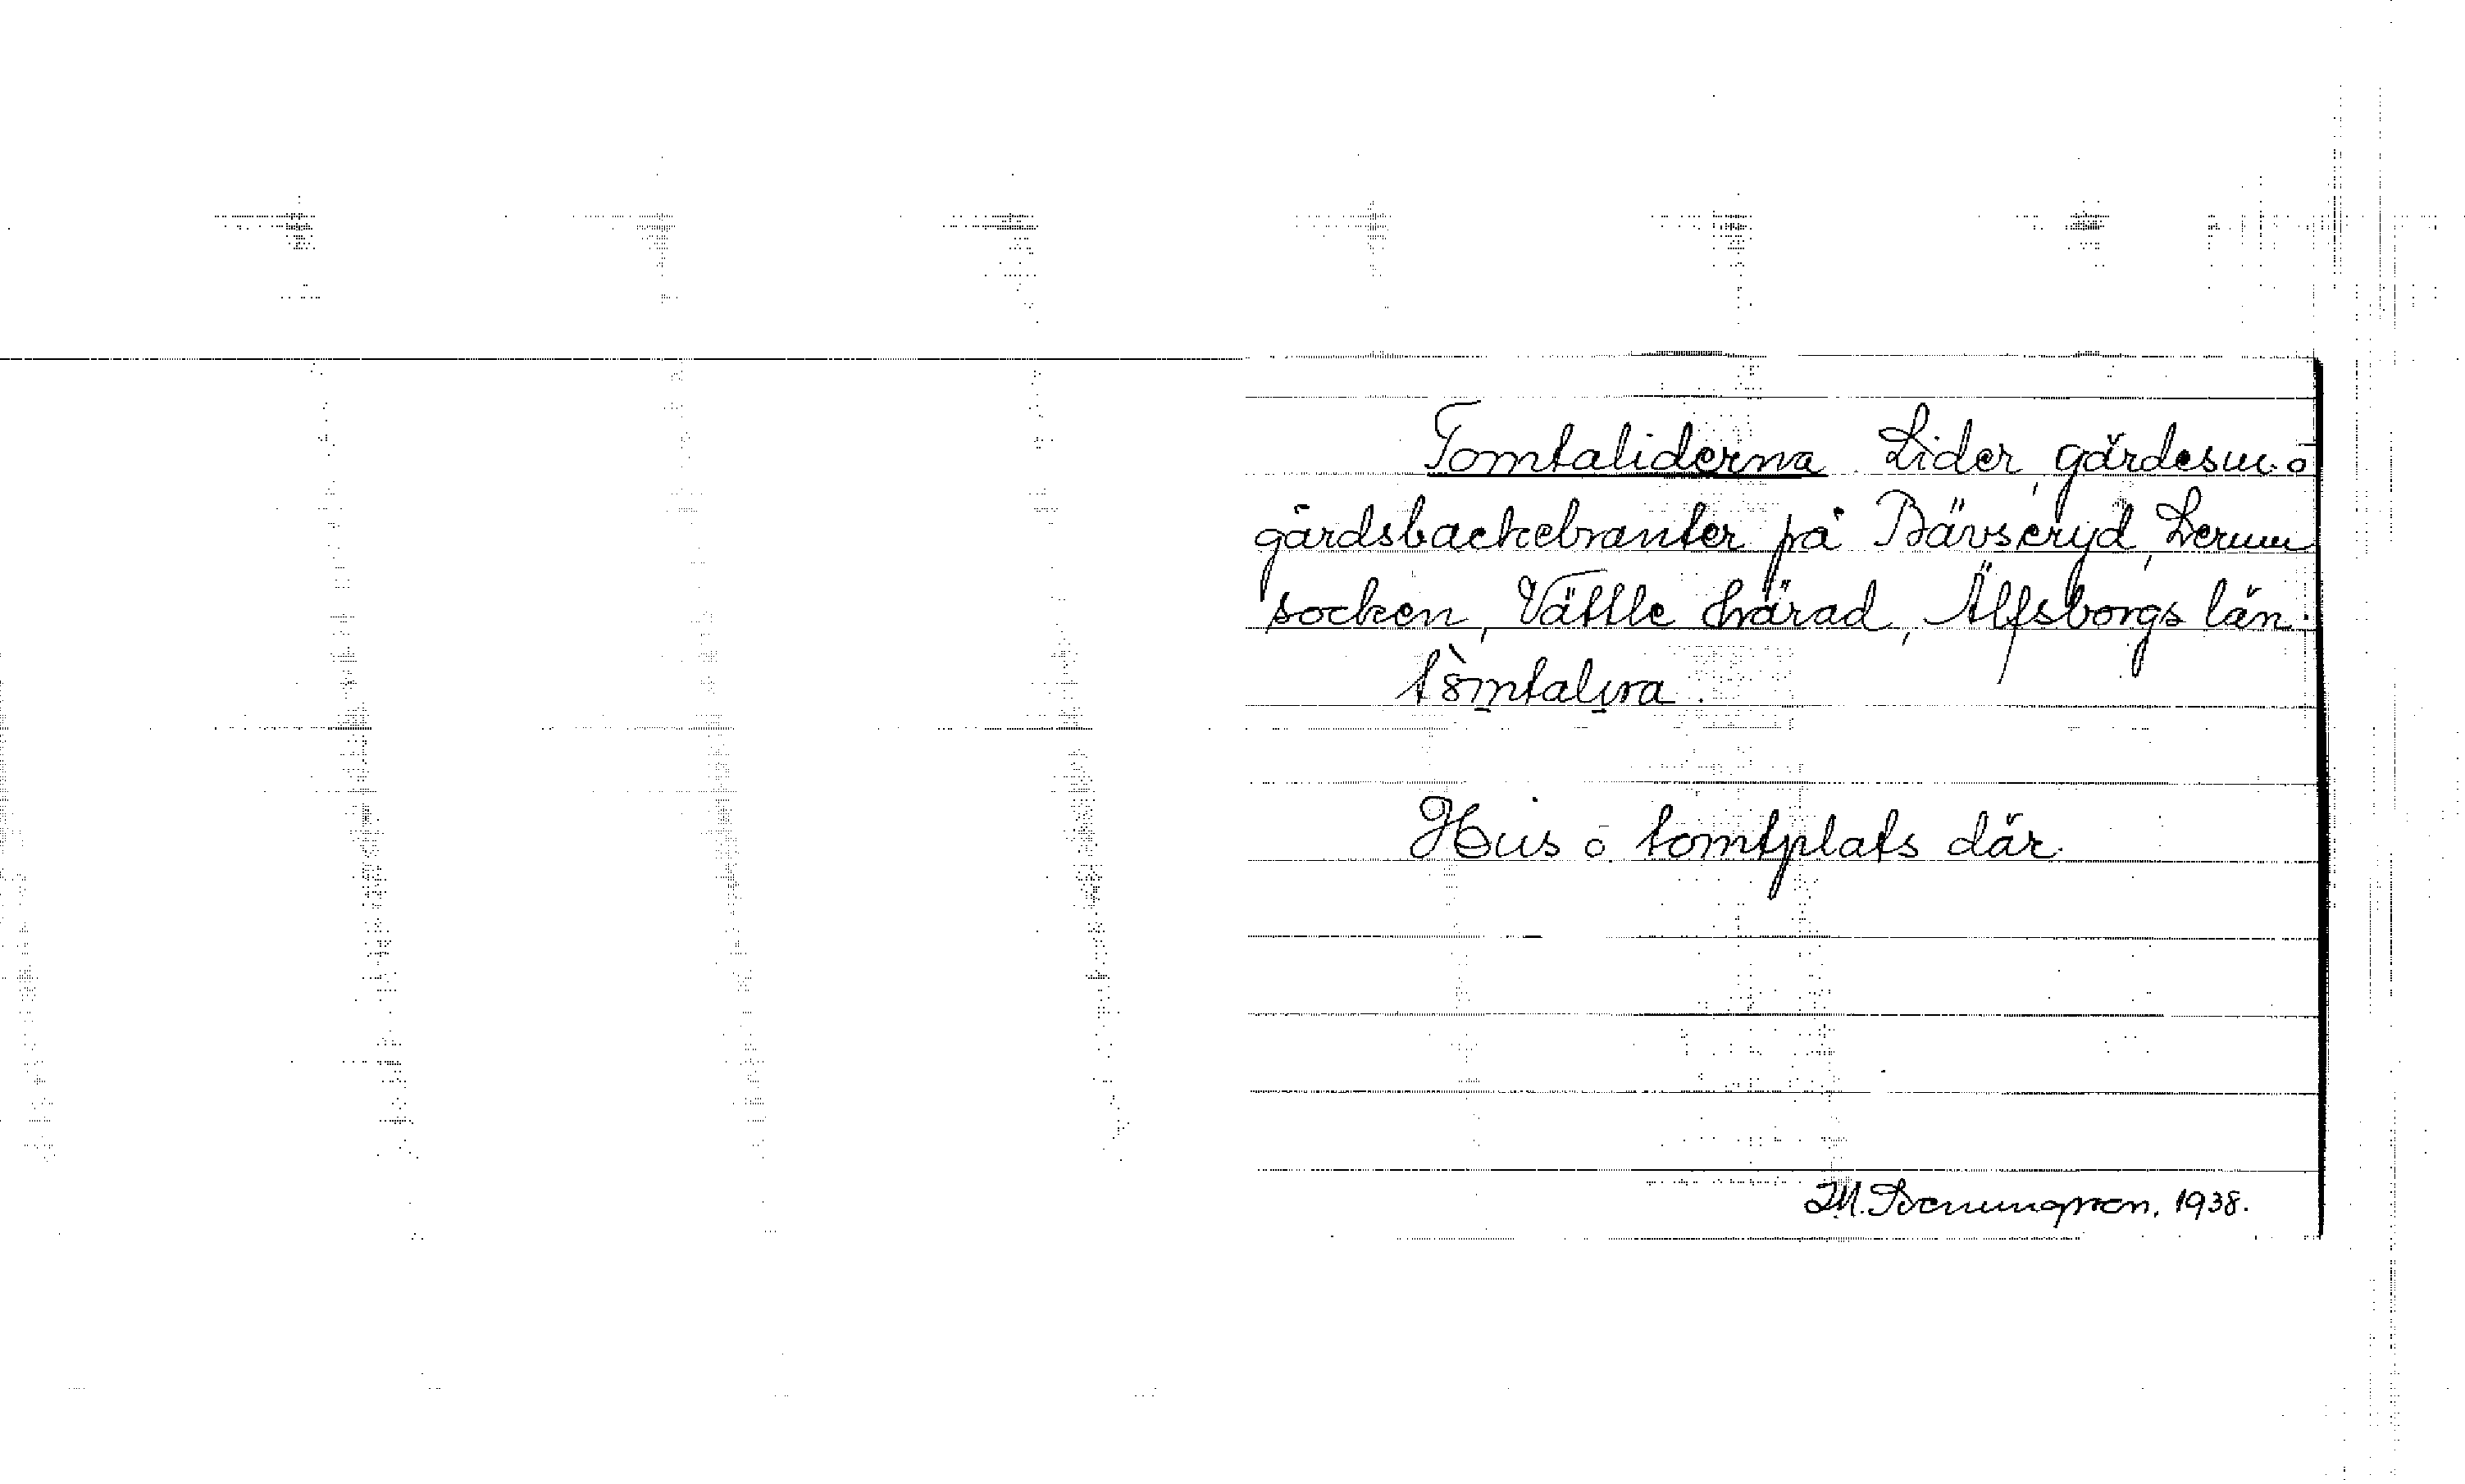 Tomtaliderna. Lider, gärdesm. o
gårdsbackebranter på Bävseryd, Lerum
socken, Vättle härad, Älfsborgs län.
tòmtalıra.
Hus o. tomtplats där.
1938.